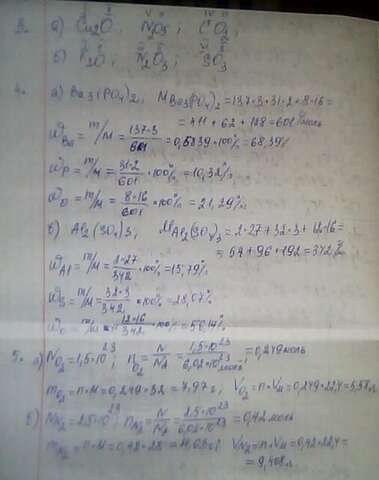 3. а) Cu₂O ; N₂O₅ ; ;
б) ; N₂O₃ ; SO₃
4. а) Ba₃(PO₄)₂, M Ba₃(PO₄)₂ = 137·3+31·2+8·16=
= 411 + 62 + 128 = 601 г/моль
ω Ba = m/M = 137·3/601 = 0,6839·100% = 68,39%
ωP = m/M = 31·2/601 · 100% = 10,32%
ωO = m/M = 8·16/601 · 100% = 21,29%
б) Al₂(SO₄)3, M Al₂(SO₄)₃ = 2·27+32·3+12·16=
= 54 + 96 + 192 = 342
ωAl = m/M = 2·27/342 · 100% = 15,79%
ωS = m/M = 32·3/342 · 100% = 28,07%
ωO = m/M = 12·16/342 · 100% = 56,14%
5. а) NO₂ = 1,5·10²³, nO₂ = N/NA = 1,5·10²³/6,02·10²³ моль = 0,249 моль
mO₂ = n·M = 0,249·32 = 7,97 г, VO₂ = n·Vм = 0,249·22,4 = 5,58л
б) NN₂ = 2,5·10²³, nN₂ = N/NA = 2,5·10²³/6,02·10²³ = 0,42 моль
mN₂ = n·M = 0,42·28 = VN₂ = n·Vм = 0,42·22,4
= 9,408 л